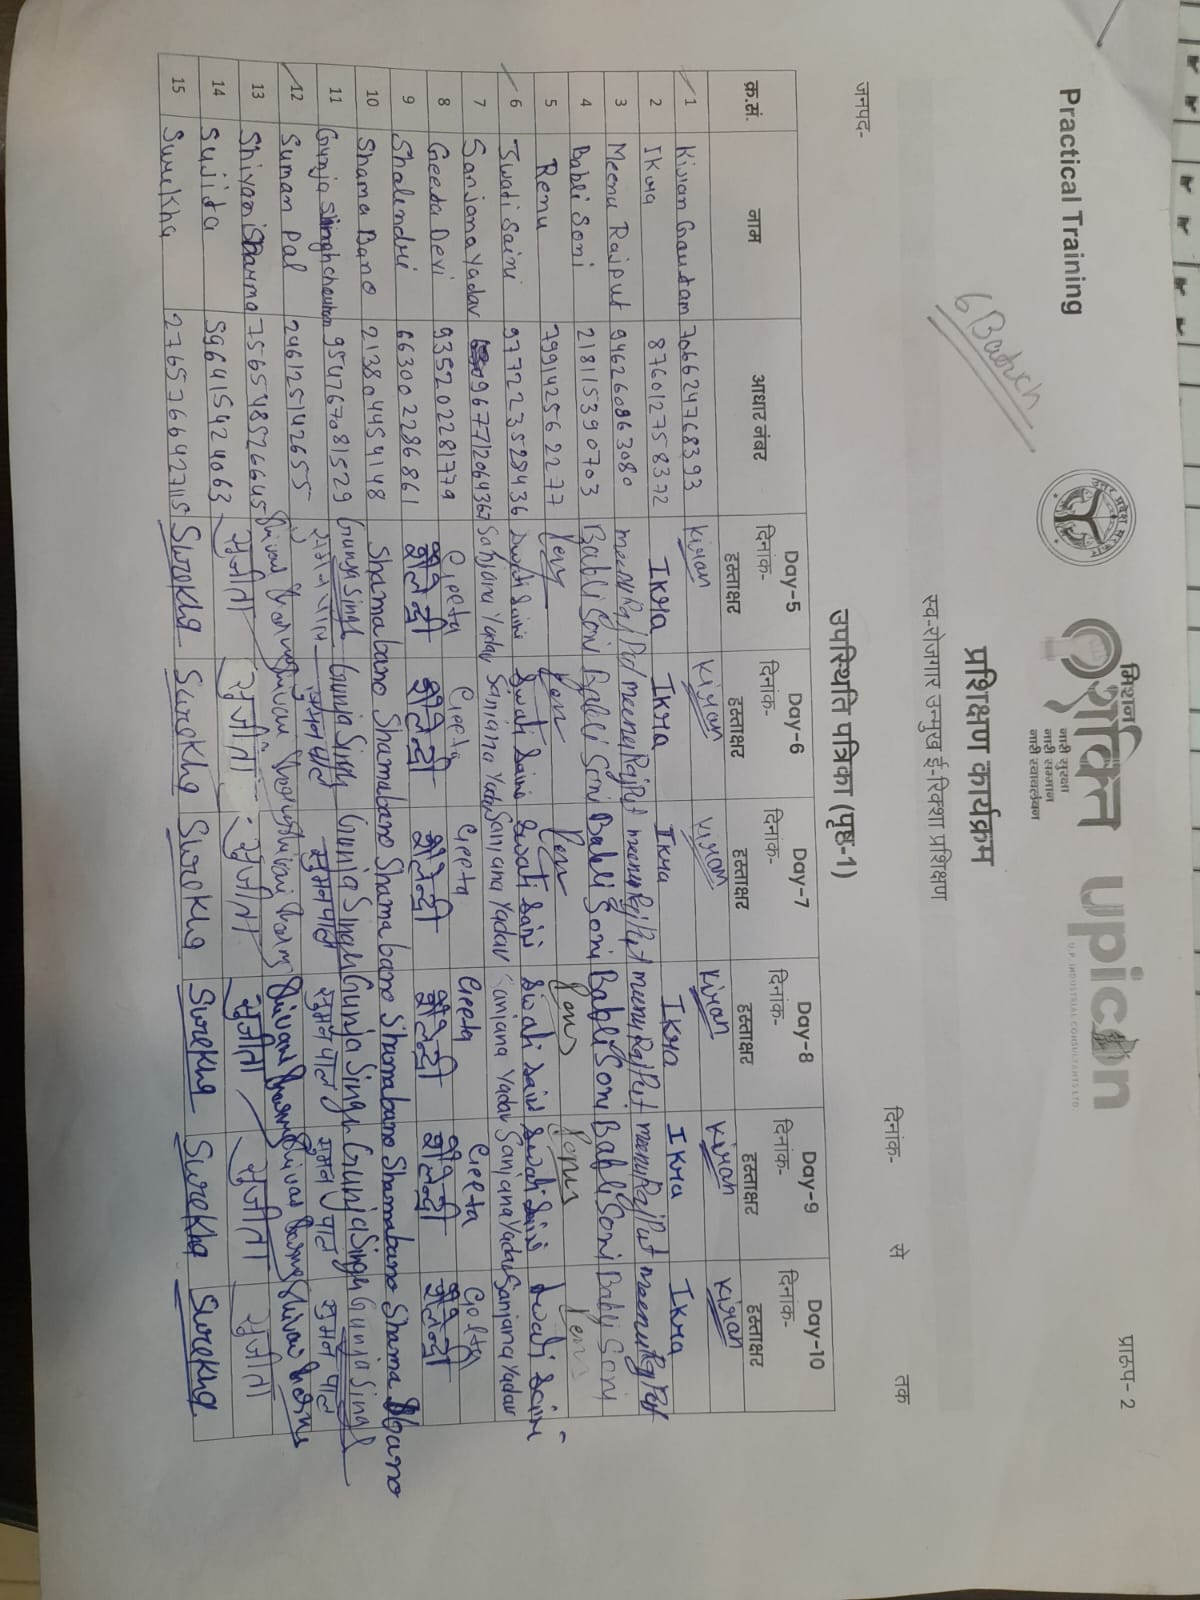 Practical Training
प्रारूप- 2
6 Batch
उत्तर प्रदेश
मिशन
शक्ति
नारी सुरक्षा
नारी सम्मान
नारी स्वावलंबन
upicon
U.P. INDUSTRIAL CONSULTANTS LTD.
प्रशिक्षण कार्यक्रम
स्व-रोजगार उन्मुख ई-रिक्शा प्रशिक्षण
जनपद- दिनांक- से तक
उपस्थिति पत्रिका (पृष्ठ-1)
क्र.सं. नाम आधार नंबर Day-5 Day-6 Day-7 Day-8 Day-9 Day-10
दिनांक- दिनांक- दिनांक- दिनांक- दिनांक- दिनांक-
हस्ताक्षर हस्ताक्षर हस्ताक्षर हस्ताक्षर हस्ताक्षर हस्ताक्षर
1 Kiran Gautam 706624768393 Kiran Kiran Kiran Kiran Kiran Kiran
2 Ikra 876012758372 Ikra Ikra Ikra Ikra Ikra Ikra
3 Meenu Rajput 946260863080 meenu RajPut meenu RajPut meenu RajPut meenu RajPut meenu RajPut meenu RajPut
4 Babli Soni 218115390703 Babli Soni Babli Soni Babli Soni Babli Soni Babli Soni Babli Soni
5 Renu 799142562277
6 Swati Saini 977223528436 Swati Saini Swati Saini Swati Saini Swati Saini Swati Saini Swati Saini
7 Sanjana Yadav 967712064367 Sanjana Yadav Sanjana Yadav Sanjana Yadav Sanjana Yadav Sanjana Yadav Sanjana Yadav
8 Geeta Devi 935202281779 Geeta Geeta Geeta Geeta Geeta Geeta
9 Shalendri 663002286861 शैलेन्द्री शैलेन्द्री शैलेन्द्री शैलेन्द्री शैलेन्द्री शैलेन्द्री
10 Shama Bano 213804454148 Shamabano Shamabano Shamabano Shamabano Shamabano Shama Bano
11 Gunja Singh chauhan 954767081529 Gunja Singh Gunja Singh Gunja Singh Gunja Singh Gunja Singh Gunja Singh
12 Suman Pal 246125142655 सुमन पाल सुमन पाल सुमन पाल सुमन पाल सुमन पाल सुमन पाल
13 Shivani Sharma 756548526645
14 Sujita 596415424063 सुजीता सुजीता सुजीता सुजीता सुजीता सुजीता
15 Surekha 276576642715 Surekha Surekha Surekha Surekha Surekha Surekha